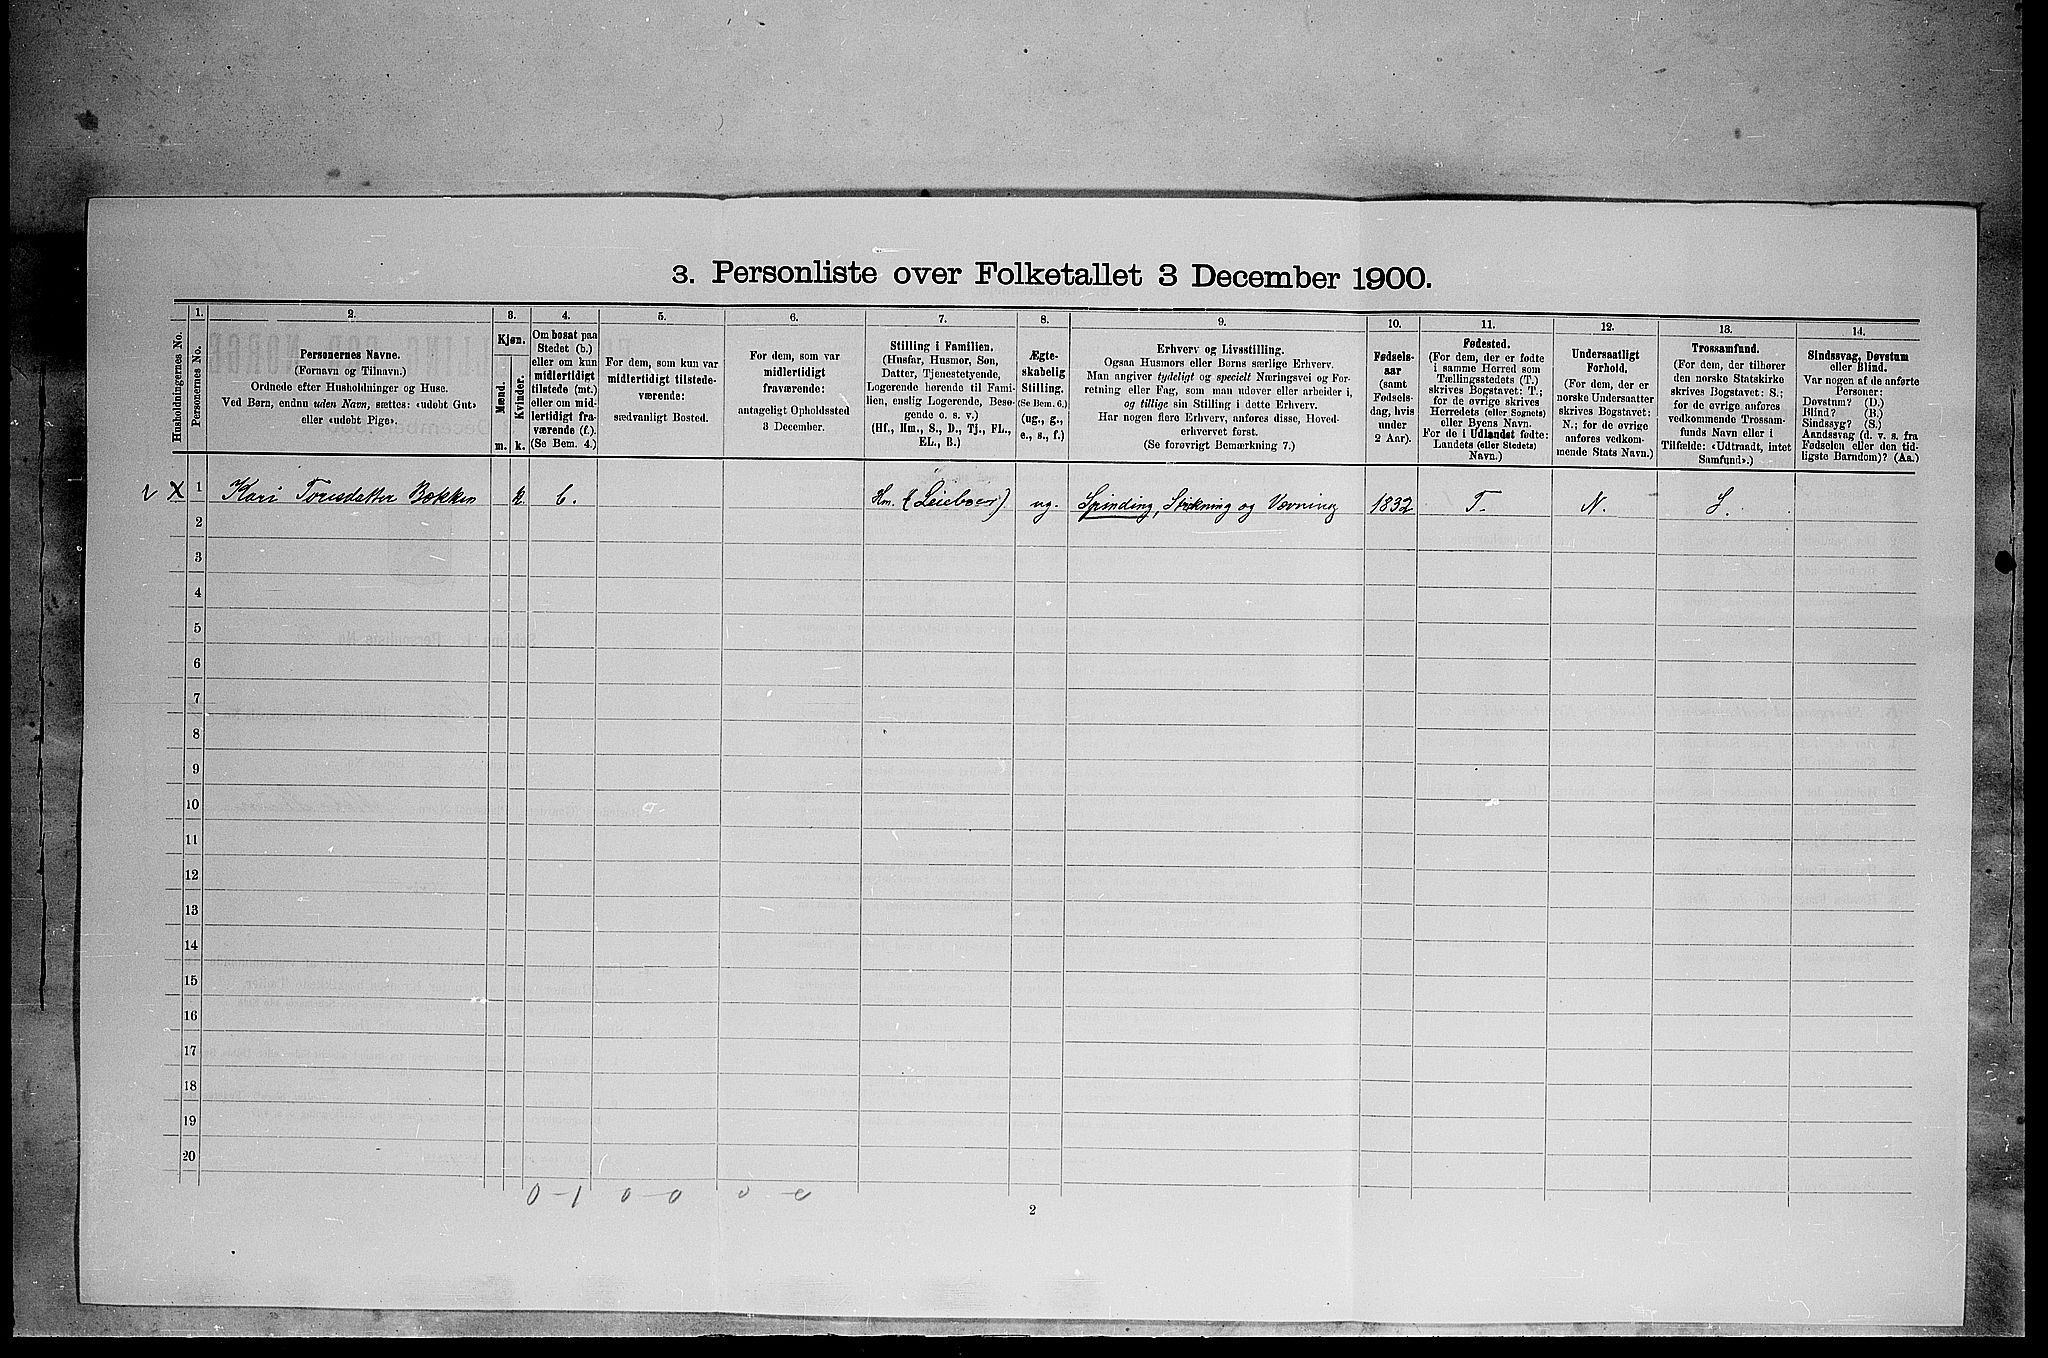 3. Personliste over Folketallet 3 December 1900.
Husholdningernes No.
1.
Personernes No.
2.
Personernes Navne.
(Fornavn og Tilnavn.)
Ordnede efter Husholdninger og Huse.
Ved Børn, endnu uden Navn, sættes: «udøbt Gut»
eller «udøbt Pige».
3.
Kjøn.
Mænd.
Kvinder.
m. k.
4.
Om bosat paa
Stedet (b.)
eller om kun
midlertidigt
tilstede (mt.)
eller om mid-
lertidigt fra-
værende (f.).
(Se Bem. 4.)
5.
For dem, som kun var
midlertidigt tilstede-
værende:
sædvanligt Bosted.
6.
For dem, som var
midlertidigt
fraværende:
antageligt Opholdssted
3 December.
7.
Stilling i Familien.
(Husfar, Husmor, Søn,
Datter, Tjenestetyende,
Logerende hørende til Fami-
lien, enslig Logerende, Besø-
gende o. s. v.)
(Hf., Hm., S., D., Tj., FL.,
EL., B.)
8.
Ægte-
skabelig
Stilling.
(Se Bem. 6.)
(ug., g.,
e., s., f.)
9.
Erhverv og Livsstilling.
Ogsaa Husmors eller Børns særlige Erhverv.
Man angiver tydeligt og specielt Næringsvei og For-
retning eller Fag, som man udøver eller arbeider i,
og tillige sin Stilling i dette Erhverv.
Har nogen flere Erhverv, anføres disse, Hoved-
erhvervet først.
(Se forøvrigt Bemærkning 7.)
10.
Fødsels-
aar
(samt
Fødsels-
dag, hvis
under
2 Aar).
11.
Fødested.
(For dem, der er fødte
i samme Herred som
Tællingsstedets (T.)
skrives Bogstavet: T.;
for de øvrige skrives
Herredets (eller Sognets)
eller Byens Navn.
For de i Udlandet fødte:
Landets (eller Stedets)
Navn.)
12.
Undersaatligt
Forhold.
(For dem, der er
norske Undersaatter
skrives Bogstavet:
N.; for de øvrige
anføres vedkom-
mende Stats Navn.)
13.
Trossamfund.
(For dem, der tilhører
den norske Statskirke
skrives Bogstavet: S.;
for de øvrige anføres
vedkommende Trossam-
funds Navn eller i
Tilfælde: «Udtraadt, intet
Samfund».)
14.
Sindssvag, Døvstum
eller Blind.
Var nogen af de anførte
Personer:
Døvstum? (D.)
Blind? (B.)
Sindssyg? (S.)
Aandssvag (d. v. s. fra
Fødselen eller den tid-
ligste Barndom)? (Aa.)
X 1 Kari Toresdatter Bækken k b. Hm. (Leieboer) ug. Spinding, Strikning og Vævning 1832 T. N. S.
2
3
4
5
6
7
8
9
10
11
12
13
14
15
16
17
18
19
20
0 – 1 0 – 0 0 – 0
2